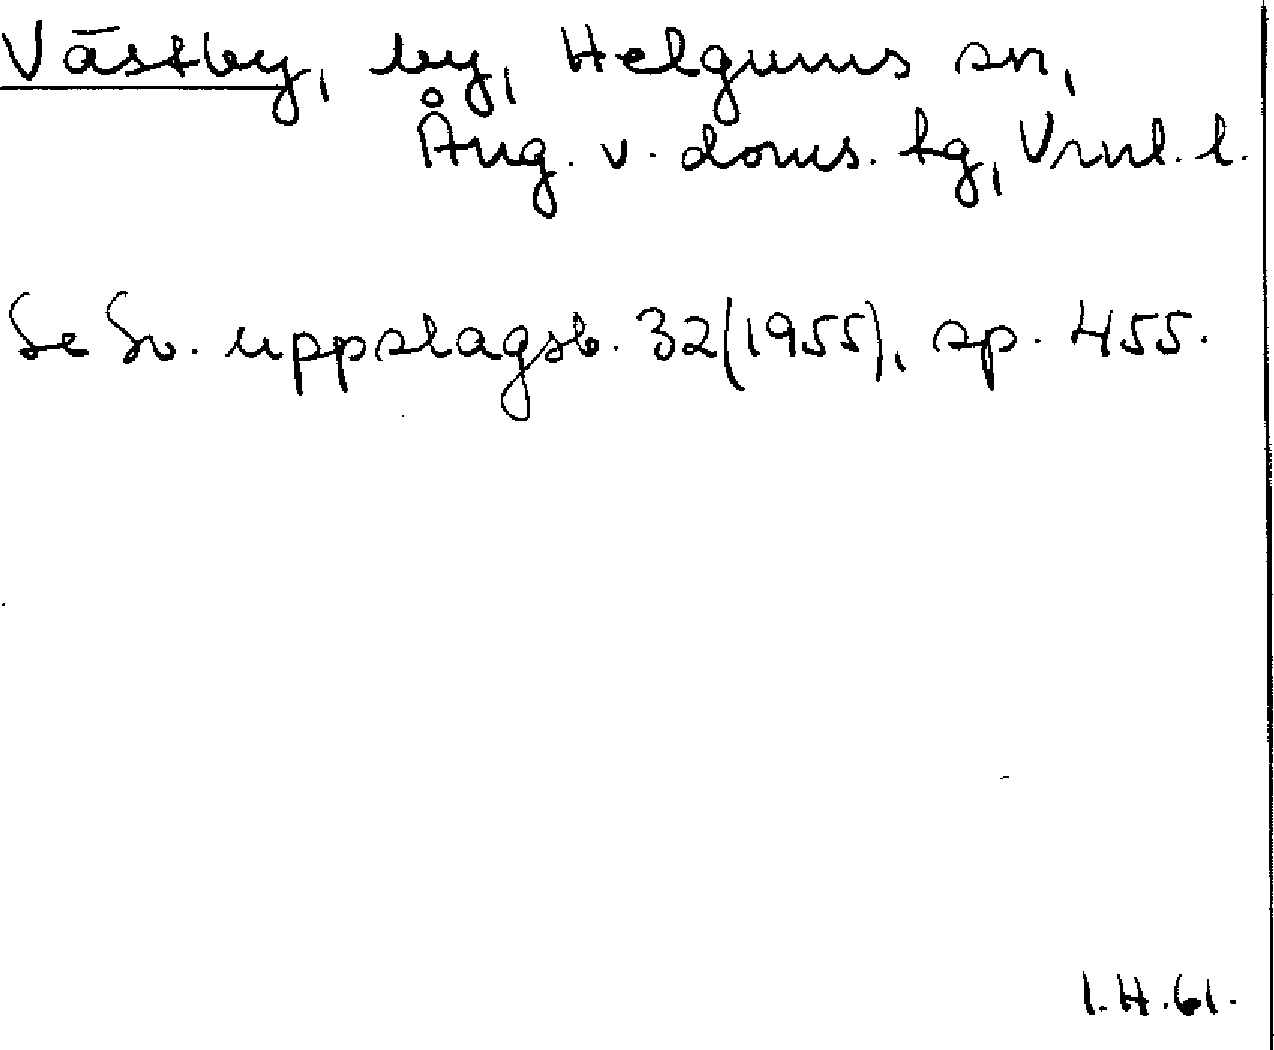 Västby, by, Helgums sn,
Ång. v. doms. tg, Vrnl. l.
Se Sv. uppslagsb. 32(1955), sp. 455.
I.H.61.